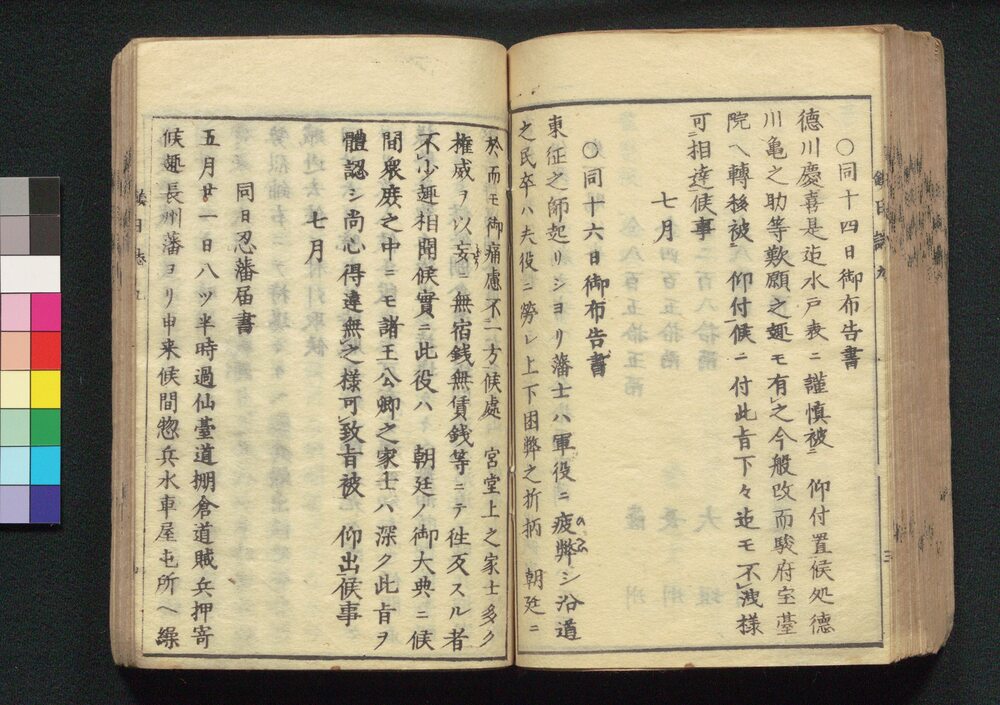 〇同十四日御布告書
徳川慶喜是迄水戸表ニ謹慎被ニ 仰付置候処徳
川亀之助等歎願之趣モ有之今般改而駿府宝臺
院ヘ轉移被ニ 仰付候ニ付此旨下々迄モ不洩様
可ニ相達候事
七月
〇同十六日御布告書
東征之師起リシヨリ藩士ハ軍役ニ疲弊シ沿道
之民卒ハ夫役ニ勞レ上下困弊之折柄 朝廷ニ
於而モ御痛慮不一方候處 宮堂上之家士多ク
権威ヲ以妄ニ無宿銭無賃銭等ニテ徃反スル者
不少趣相聞候實ニ此役ハ 朝廷ノ御大典ニ候
間衆庶之中ニモ諸王公卿之家士ハ深ク此旨ヲ
體認シ尚心得違無之様可致旨被 仰出候事
七月
同日忍藩届書
五月廿一日八ツ半時過仙臺道棚倉道賊兵押寄
候趣長州藩ヨリ申来候間惣兵水車屋屯所ヘ繰